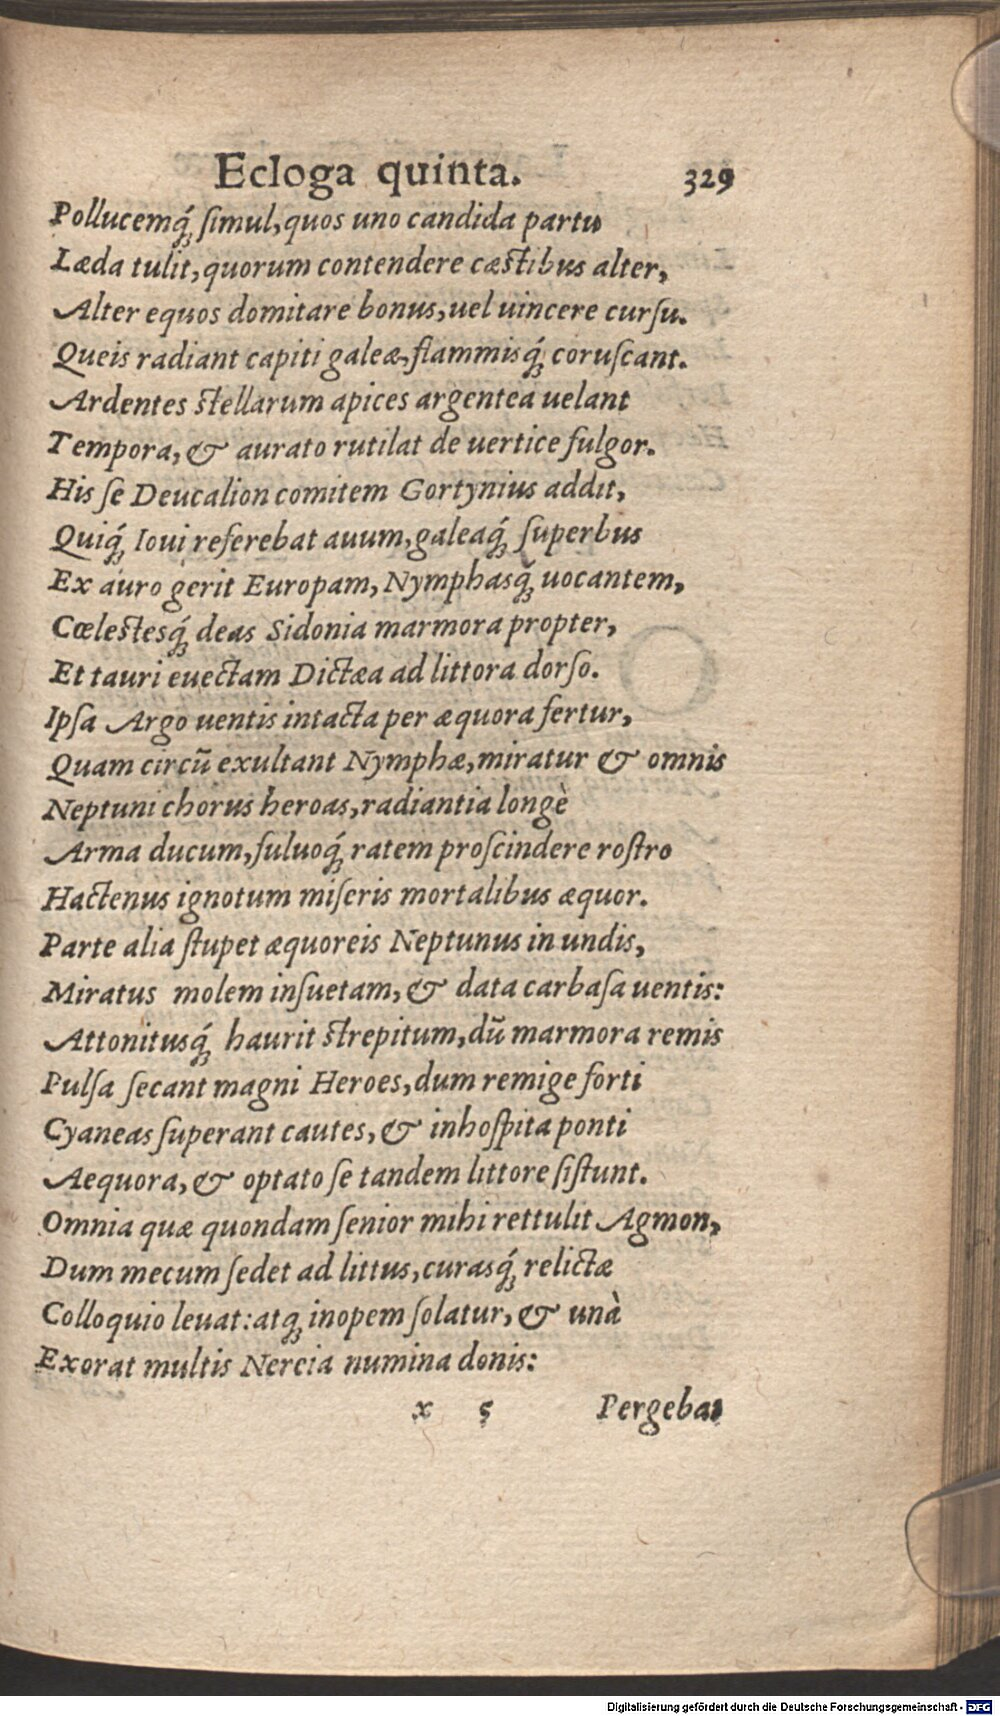 Ecloga quinta. 329
Pollucemq́; ſimul, quos uno candida partu
Læda tulit, quorum contendere cæstibus alter,
Alter equos domitare bonus, uel uincere curſu.
Queis radiant capiti galeæ, flammisq́; coruſcant.
Ardentes stellarum apices argentea uelant
Tempora, & aurato rutilat de uertice fulgor.
His ſe Deucalion comitem Gortynius addit,
Quiq́; Ioui referebat auum, galeaq́; ſuperbus
Ex auro gerit Europam, Nymphasq́; uocantem,
Cœlestesq́; deas Sidonia marmora propter,
Et tauri euectam Dictæa ad littora dorſo.
Ipſa Argo uentis intacta per æquora fertur,
Quam circũ exultant Nymphæ, miratur & omnis
Neptuni chorus heroas, radiantia longè
Arma ducum, fuluoq́; ratem proſcindere roſtro
Hactenus ignotum miſeris mortalibus æquor.
Parte alia ſtupet æquoreis Neptunus in undis,
Miratus molem inſuetam, & data carbaſa uentis:
Attonitusq́; haurit strepitum, dũ marmora remis
Pulſa ſecant magni Heroes, dum remige forti
Cyaneas ſuperant cautes, & inhoſpita ponti
Aequora, & optato ſe tandem littore ſiſtunt.
Omnia quæ quondam ſenior mihi rettulit Agmon,
Dum mecum ſedet ad littus, curasq́; relictæ
Colloquio leuat: atq; inopem ſolatur, & unà
Exorat multis Nereia numina donis:
x 5 Pergebat
Digitalisierung gefördert durch die Deutsche Forschungsgemeinschaft - DFG